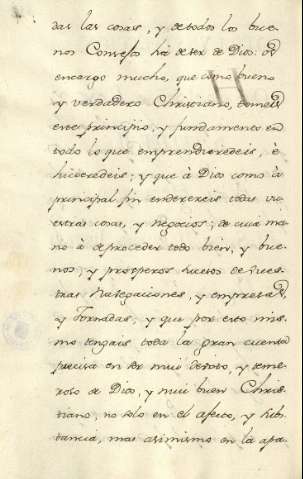 das las cosas, y de todos los bue-
nos Consejos há de ser de Dios: os
encargo mucho, que como bueno
y verdadero Christiano, tomeis
este principio, y fundamento en
todo lo que emprendieredeis, ê
hicieredeis; y que â Dios como â
principal fin enderezeis todas vu
estras cosas, y negocios; de cuia ma
no â de proceder todo bien, y bue-
nos, y prosperos sucesos de vues-
tras Nabegaciones, y empresas,
y Jornadas; y que por esto mis-
mo tengais toda la gran cuenta
precisa en ser mui devoto, y teme-
roso de Dios, y mui buen Chris-
tiano, no solo en el afecto, y subs-
tancia, mas asimismo en la apa-